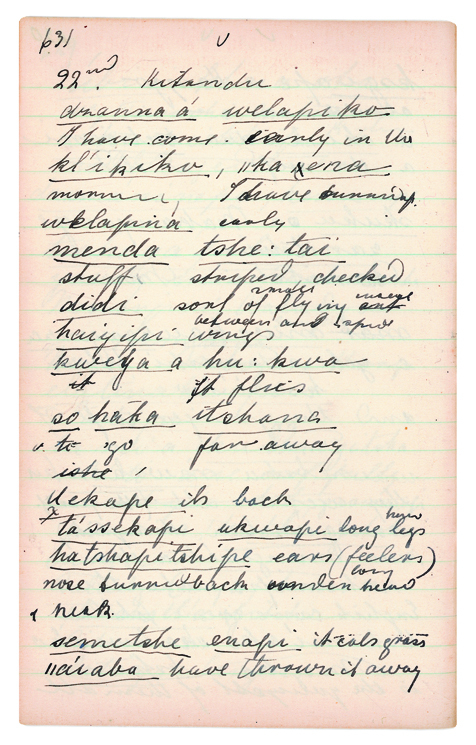 631
22nd. Kitandu
dzanna á welapiko
I have come early in the
kl'ipiko, "ha xena
I have
welapná early
menda tshe: tai
stuff striped, checked
didi sort of small flying insect
haigipi wings between and
kweya a hu: kwa
it It flies
so haka itshana
to go far away
ishe
Uekape its back
tássekapi ukwapi long legs
hatshapitshipe ears (feelers)
nose back under head
neck.
semetshe enapi it eats grass
"áiaba have thrown it away